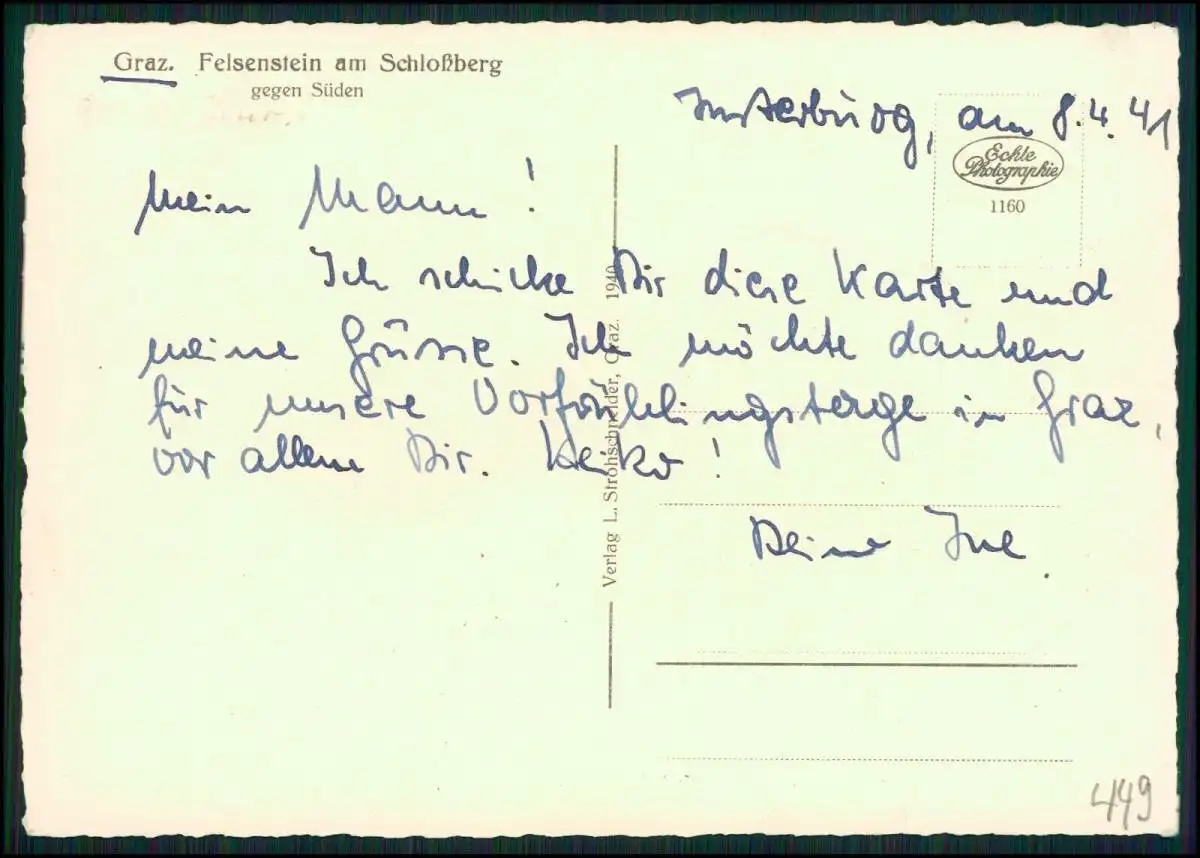 Graz. Felsenstein am Schloßberg
gegen Süden
Insterburg, am 8.4.41
Echte
Photographie
1160
Mein Mann!
Ich schicke Dir diese Karte und
meine Grüsse. Ich möchte danken
für unsere Vorfrühlingstage in Graz,
vor allem Dir. Heiko!
Deine Ine.
Verlag L. Strohschneider, Graz. 1940
449